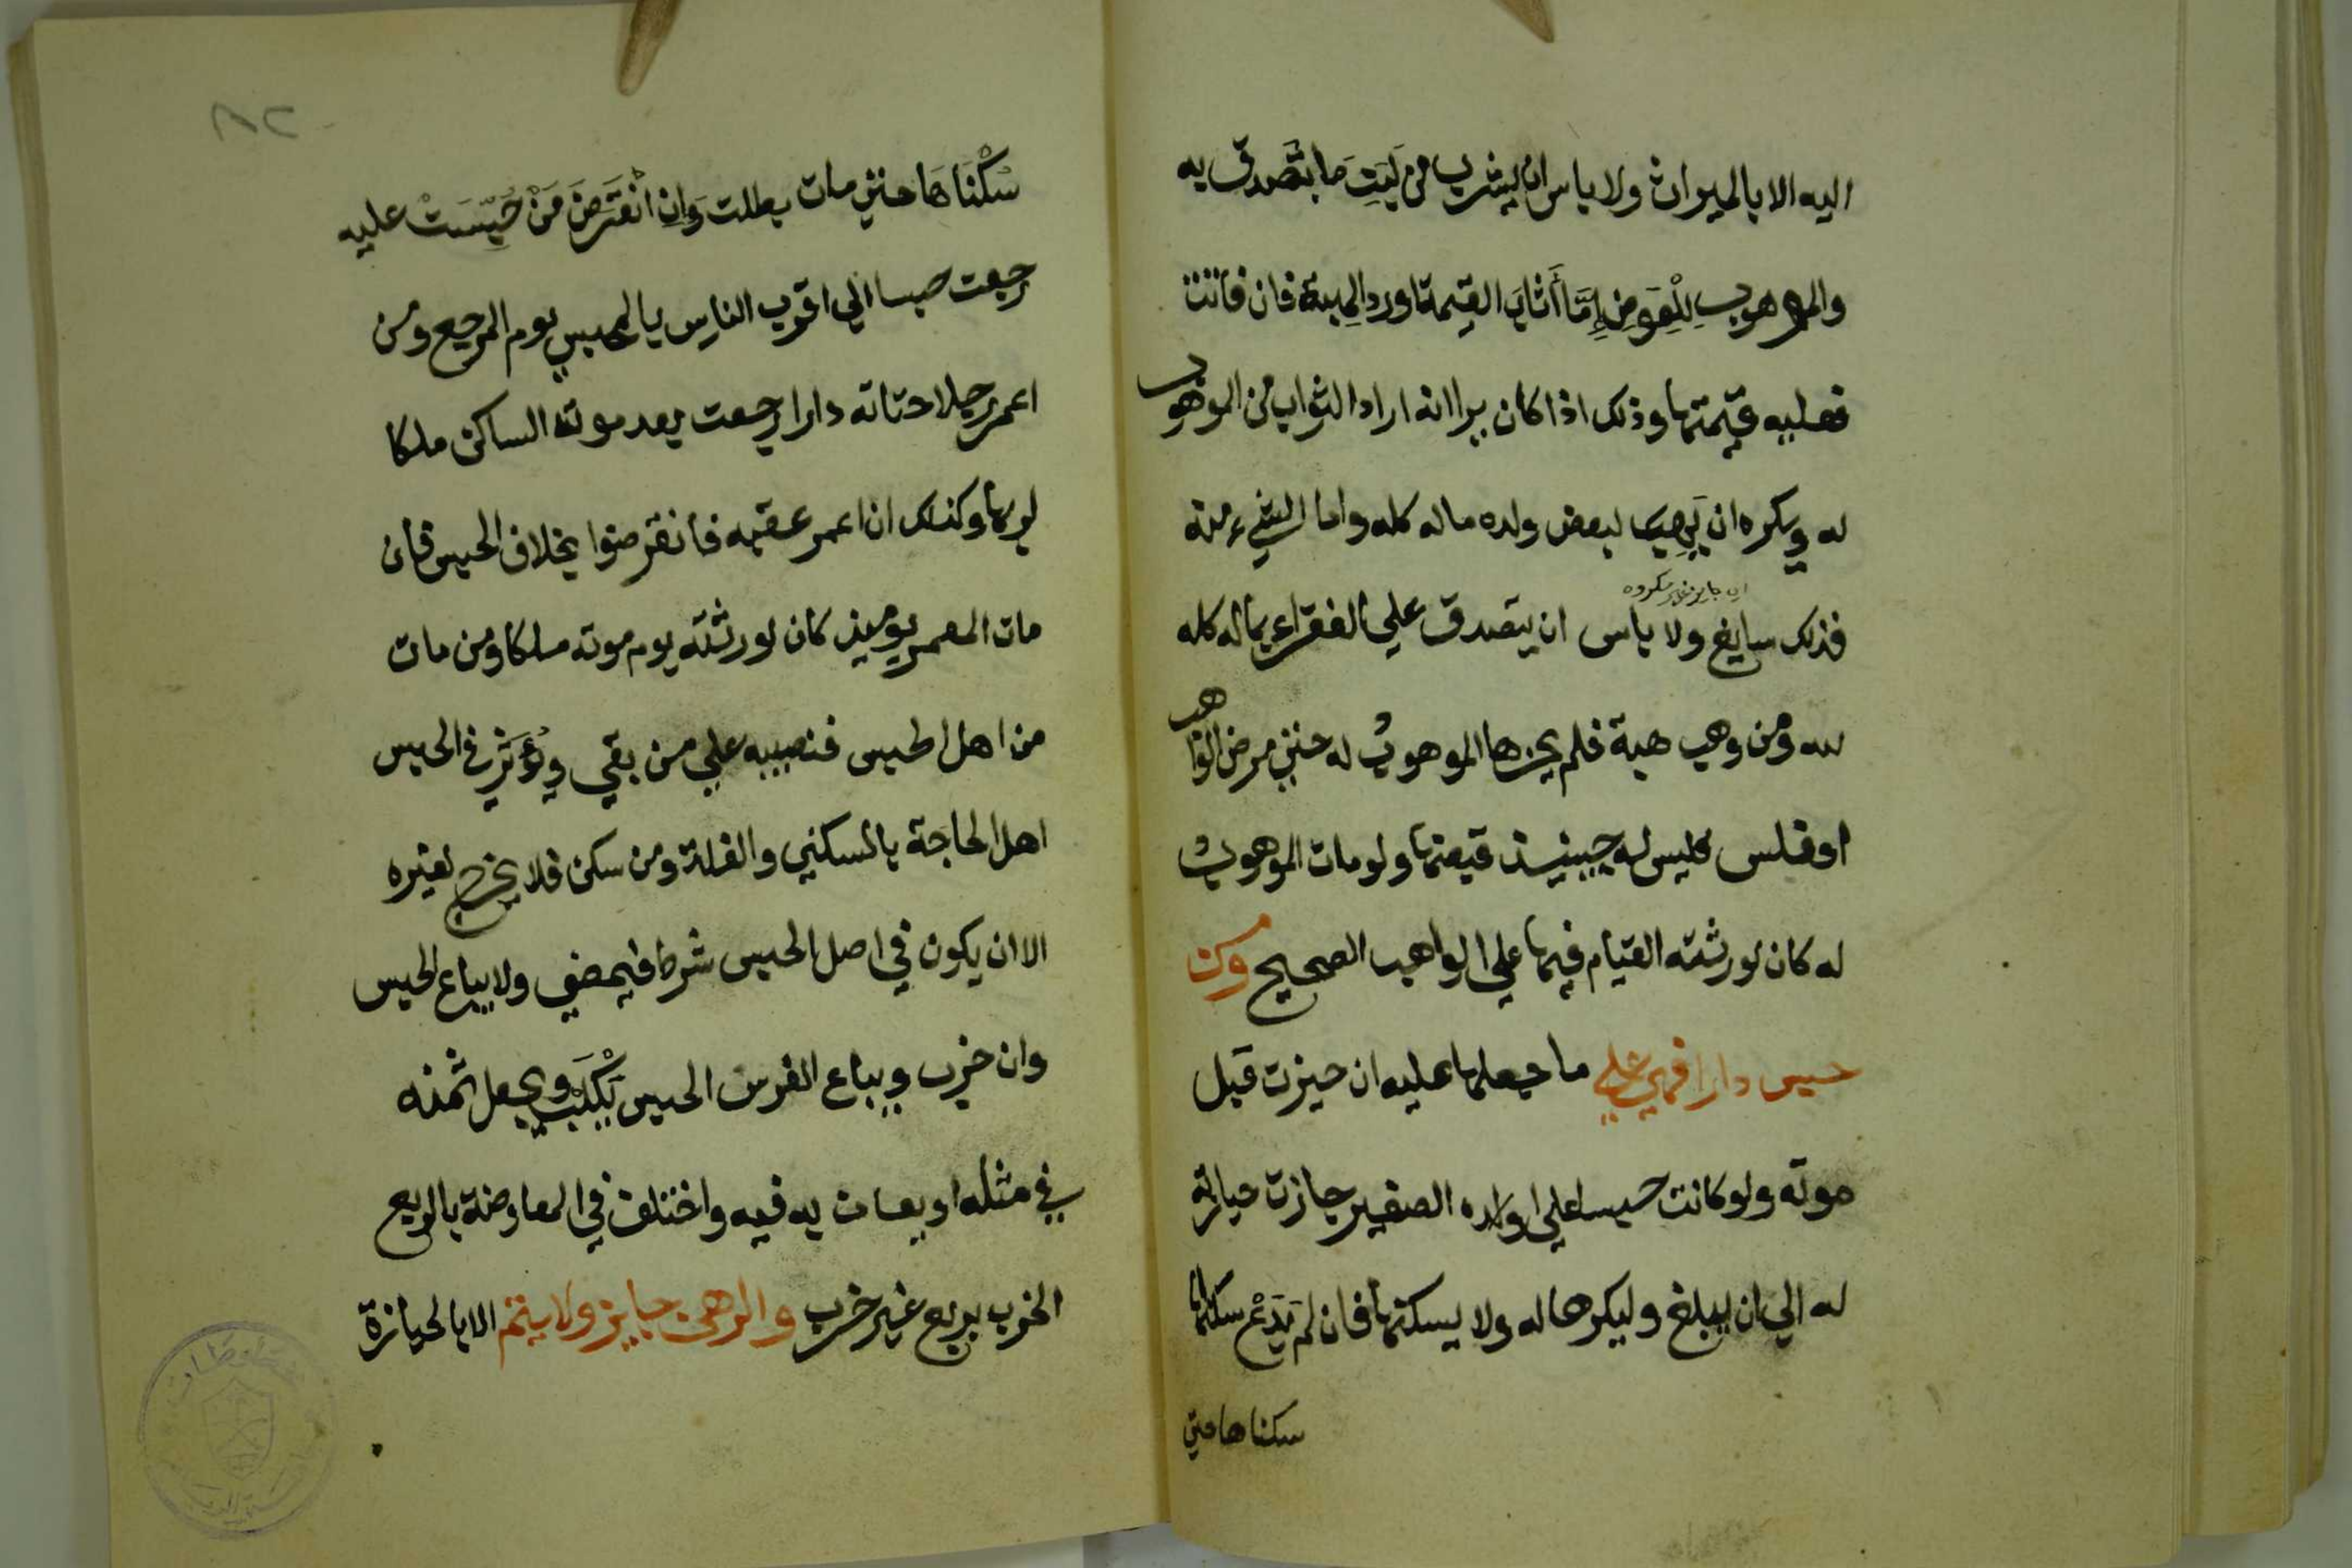 اليه الا بالميراث ولا باس ان يشرب من لبن ما تصدق به
والموهوب للعوض إما أثاب القيمة او رد الهبة فان فاتت
فعليه قيمتها وذلك اذا كان يرا انه اراد الثواب من الموهوب
له ويكره ان يهب لبعض ولده ماله كله واما الشيء منه
اي جايز غير مكروه
فذلك سايغ ولا باس ان يتصدق علي الفقراء بماله كله
لله ومن وهب هبة فلم يحزها الموهوب له حتي مرض الواهب
او فلس فليس له حينيذ قبضها ولو مات الموهوب
له كان لورثته القيام فيها علي الواهب الصحيح ومن
حبس دارا فهي علي ما جعلها عليه ان حيزت قبل
موته ولو كانت حبسا علي ولده الصغير جازت حيازته
له الي ان يبلغ وليكرها له ولا يسكنها فان لم يدع سكناها
سكناها حتي
٨٢
سكناها حتي مات بطلت وإن انقرض من حبست عليه
رجعت حبسا الي اقرب الناس بالمحبس يوم المرجع ومن
اعمر رجلا حياته دارا رجعت بعد موت الساكن ملكا
لربها وكذلك ان اعمر عقبه فانقرضوا بخلاف الحبس فان
مات المعمر يوميذ كان لورثته يوم موته ملكا ومن مات
من اهل الحبس فنصيبه علي من بقي ويؤثر في الحبس
اهل الحاجة بالسكني والغلة ومن سكن فلا يخرج لغيره
الا ان يكون في اصل الحبس شرط فيمضي ولا يباع الحبس
وان خرب ويباع الفرس الحبس يكلب ويجعل ثمنه
في مثله او يعان به فيه واختلف في المعاوضة بالربع
الخرب بربع غير خرب والرهن جايز ولا يتم الا بالحيازة